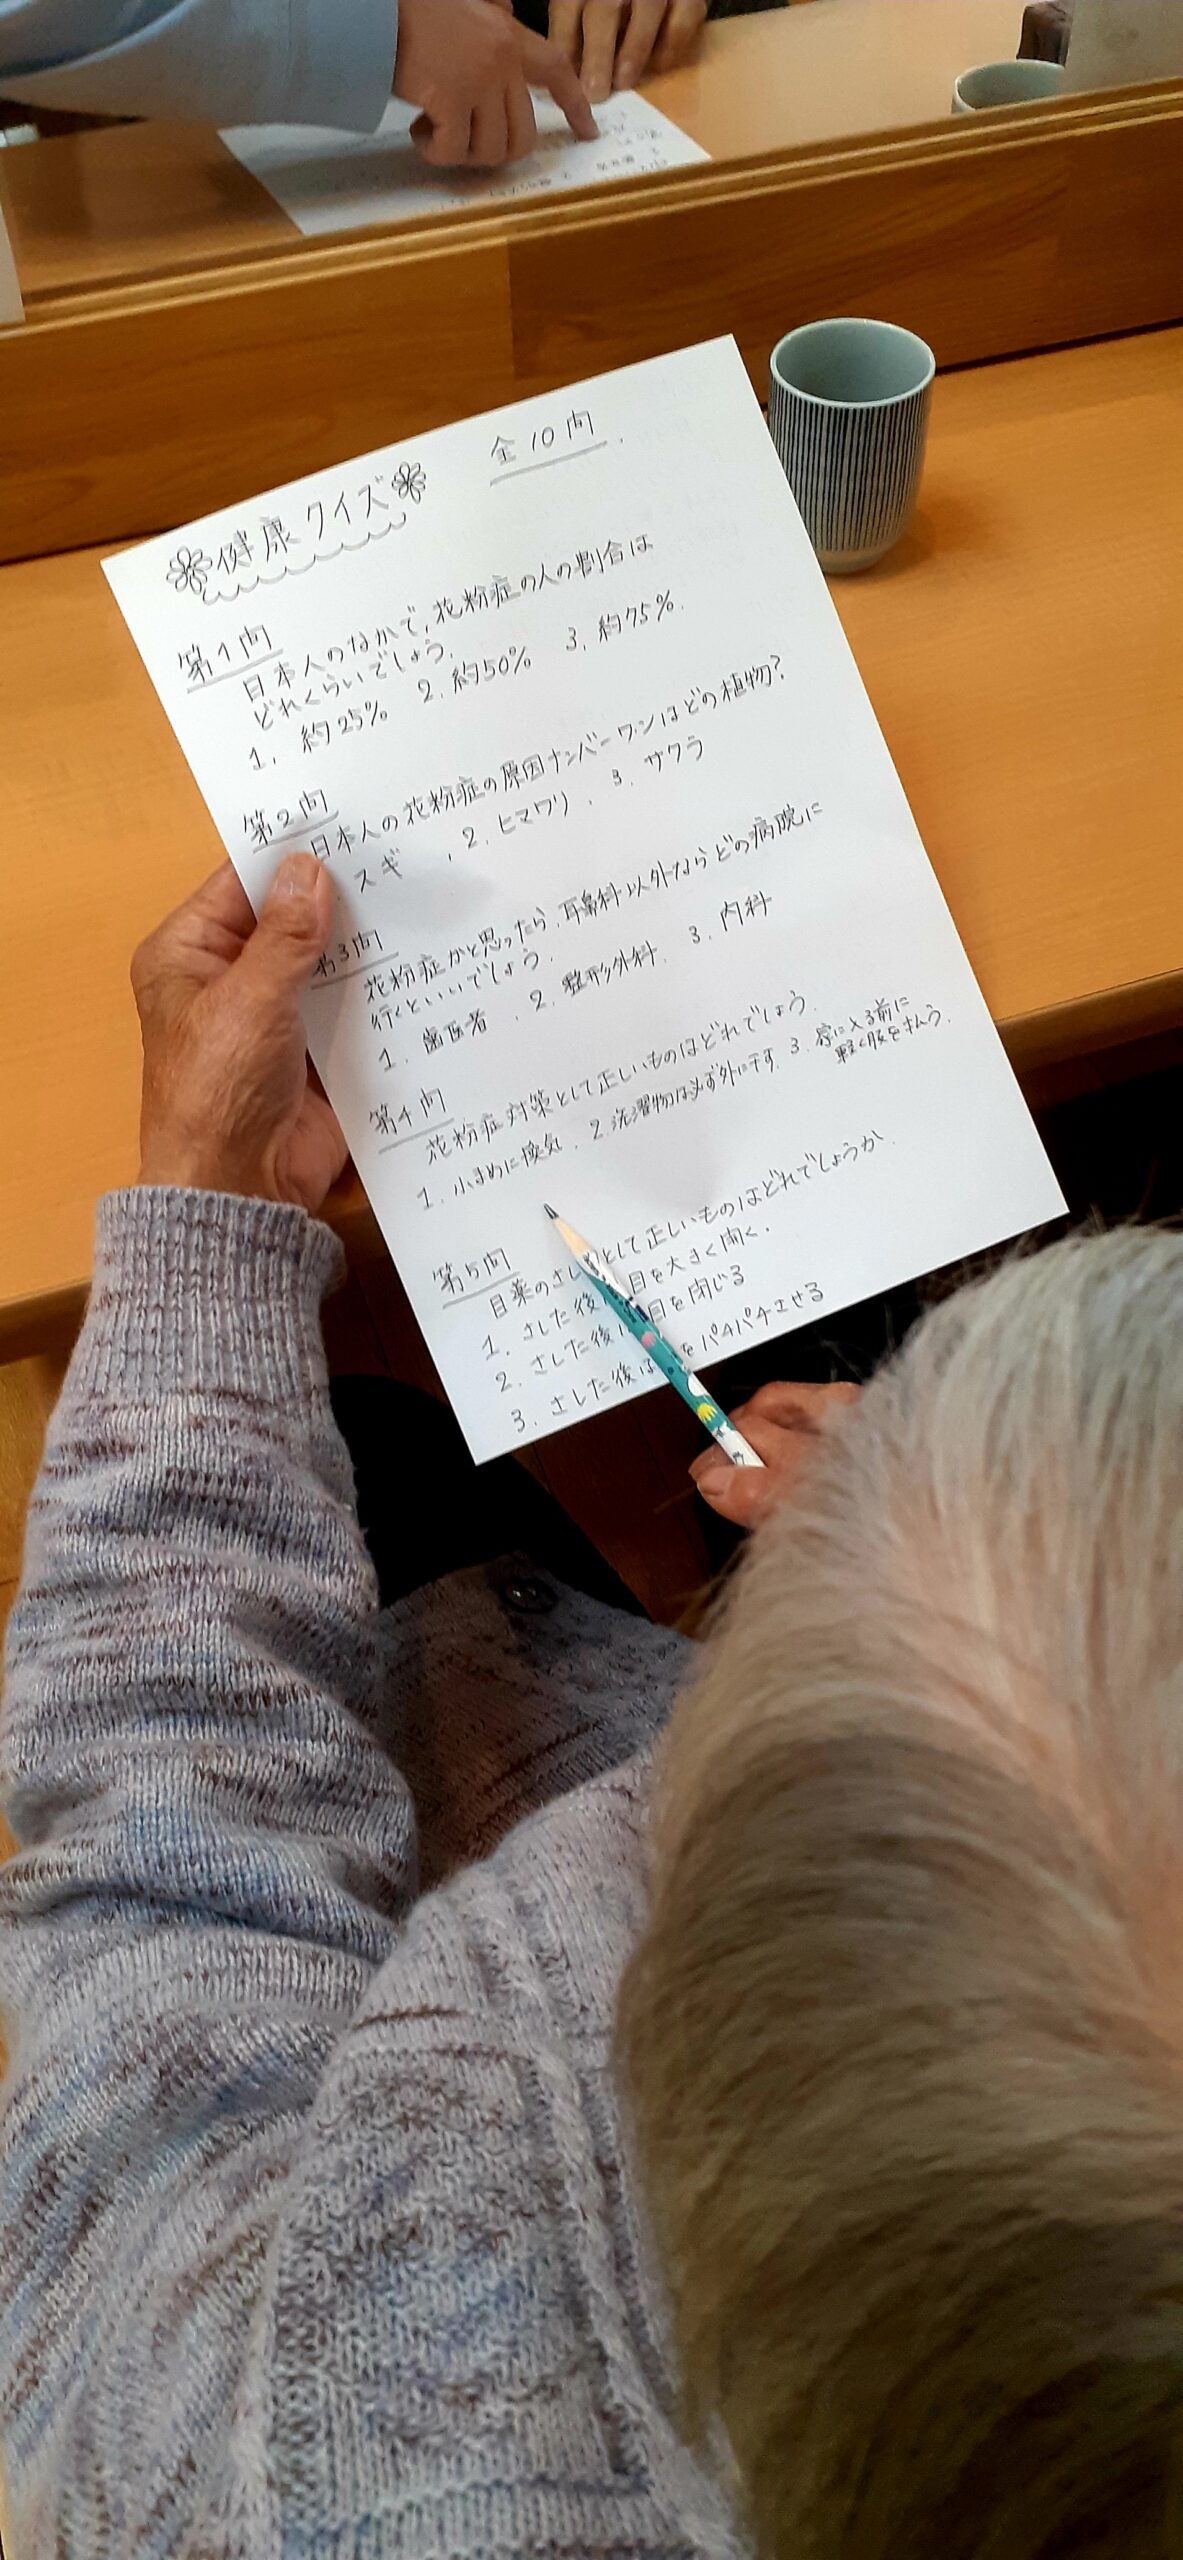 健康クイズ 全10問.
第1問
日本人のなかで、花粉症の人の割合は
どれくらいでしょう。
1. 約25% 2. 約50% 3. 約75%.
第2問
日本人の花粉症の原因ナンバーワンはどの植物?
スギ . 2. ヒマワリ . 3. サクラ
第3問
花粉症かと思ったら、耳鼻科以外ならどの病院に
行くといいでしょう。
1. 歯医者 . 2. 整形外科. 3. 内科
第4問
花粉症対策として正しいものはどれでしょう.
1. 小まめに換気. 2. 洗濯物は必ず外に干す. 3. 家に入る前に
軽く服をはらう.
第5問
目薬のさし として正しいものはどれでしょうか.
1. さした後 目を大きく開く.
2. さした後は目を閉じる
3. さした後は をパチパチさせる